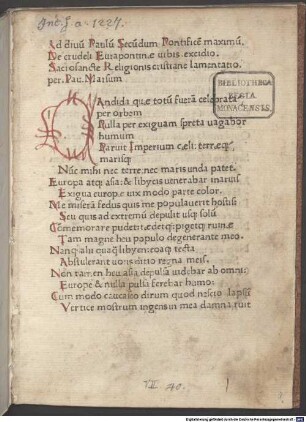 Inc. s. a. 1227.
Ad diuū Paulū Secūdum Pontificē maximū.
De crudeli Eurapontinæ urbis excidio.
Sacrosanctæ Religionis cristianæ lamentatio.
per. Pau. Marsum
BIBLIOTHECA
REGIA
MONACENSIS.
Candida quæ totū fuerā celebrata
per orbem
Nulla per exiguam spreta uagabor
humum
Paruit Imperium cæli: terræq;
marisq;
Nūc mihi nec terræ: nec maris unda patet.
Europa atq; asia: & libycis uenerabar in aruis
Exigua europæ uix modo parte color.
Me miserā fedus quis me populauerit hostis
Seu quis ad extremū depulit usq; solū
Cōmemorare pudet: & edet: q; piget: q; ruinæ
Tam magnæ heu populo degenerante meo.
Nanq; alii quāq; libyen: coacta tecta
Abstulerant uotis ditio regna meis.
Non tamen heu asia depulsa uidebar ab omni
Europæ & nulla pulsa ferebar humo:
Cum modo caucaseo dirum quod nescio lapsū
Vertice mostrum ingens in mea damna ruit